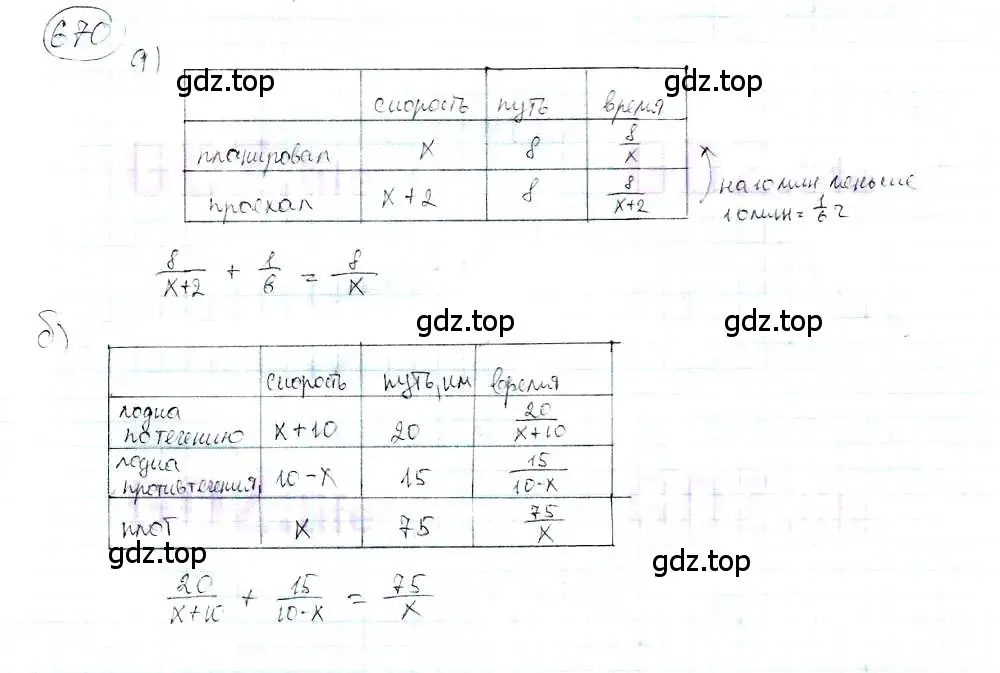 670
а)
gdz.top gdz.top
скорость путь время
планировал x 8 8/x
проехал x+2 8 8/(x+2)
на 10 мин меньше
10 мин = 1/6 ч
8/(x+2) + 1/6 = 8/x
б)
gdz.top gdz.top
скорость путь, км время
лодка
по течению x+10 20 20/(x+10)
лодка
против течения 10-x 15 15/(10-x)
плот x 75 75/x
gdz.top gdz.top
20/(x+10) + 15/(10-x) = 75/x